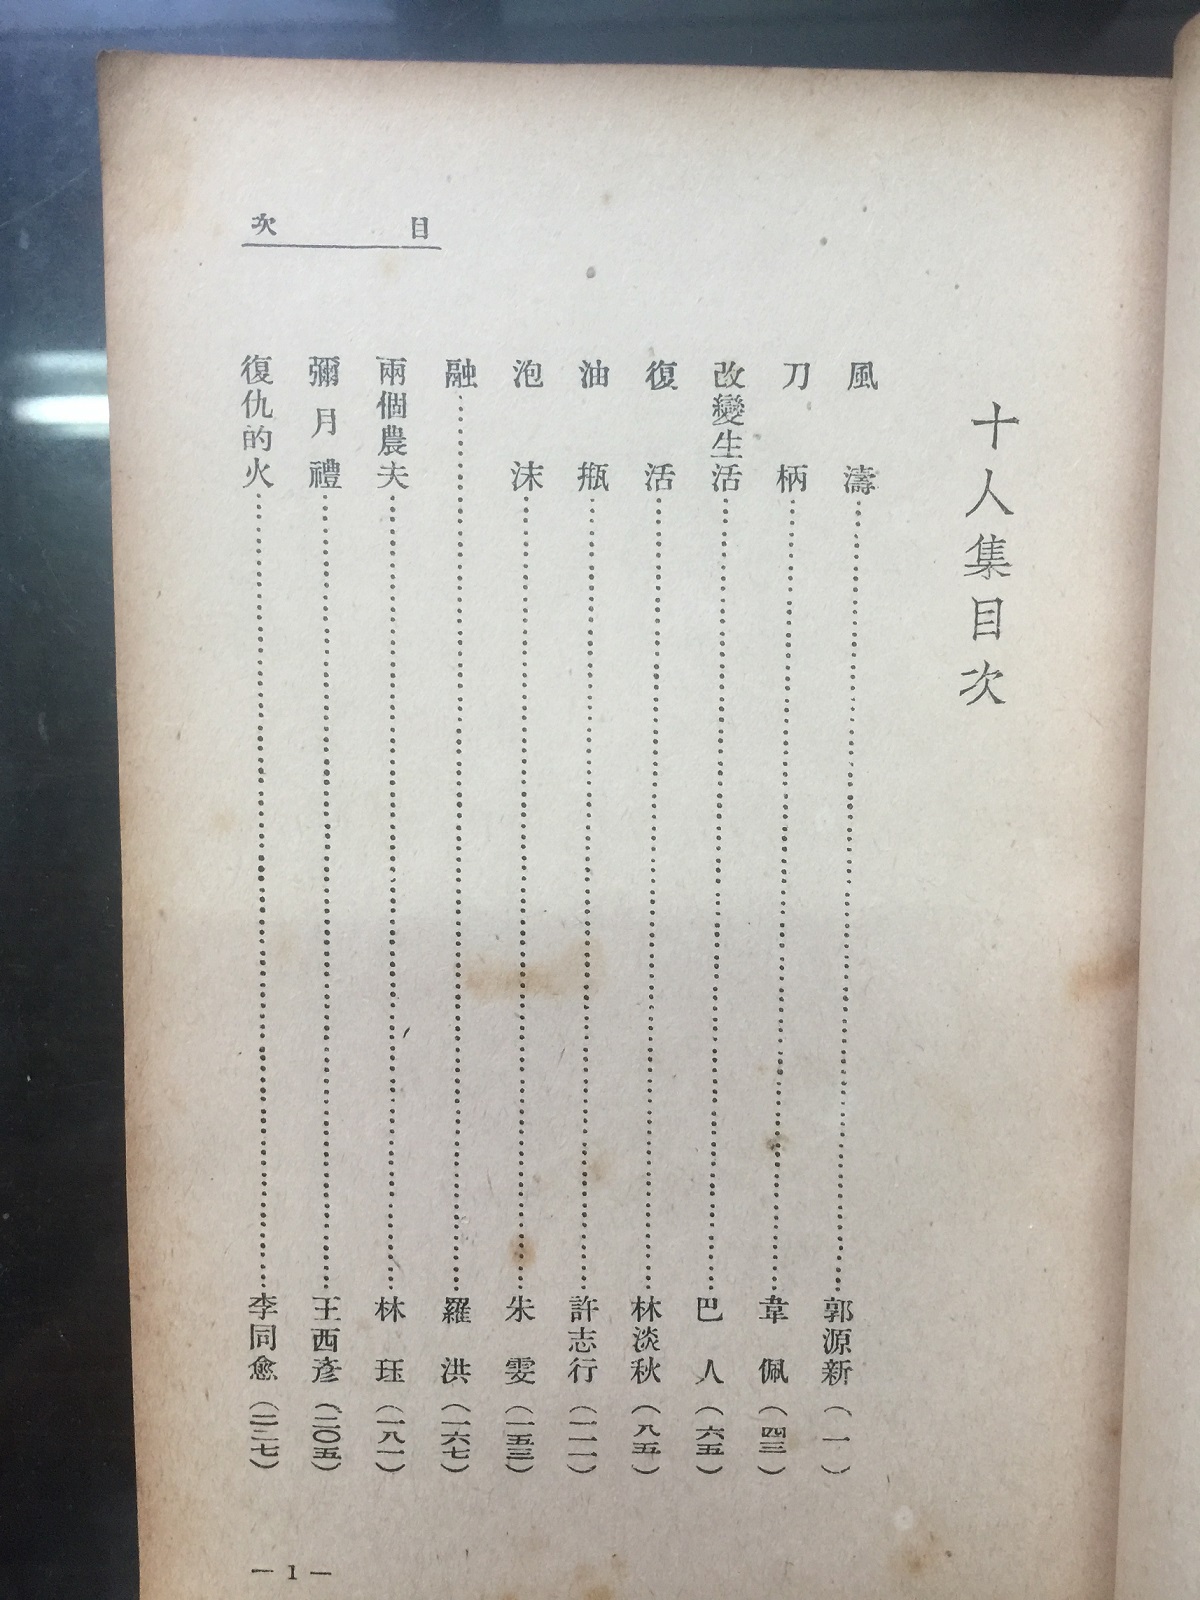 目次
十人集目次
風濤……郭源新（一）
刀柄……韋佩（四三）
改變生活……巴人（六五）
復活……林淡秋（八五）
油瓶……許志行（一一一）
泡沫……朱雯（一五三）
融……羅洪（一六七）
兩個農夫……林珏（一八一）
彌月禮……王西彥（二〇五）
復仇的火……李同愈（二二七）
— 1 —